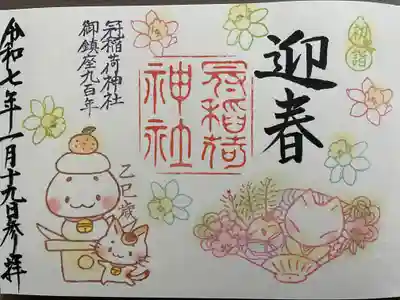 初詣
迎春
冠稲荷
神社
冠稲荷神社
御鎮座九百年
乙巳歳
令和七年一月十九日参拝